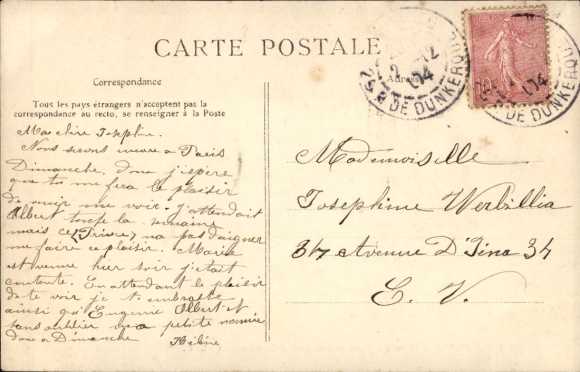 CARTE POSTALE
Correspondance
Adresse
Tous les pays étrangers n'acceptent pas la
correspondance au recto, se renseigner à la Poste
Ma chère Joséphine.
Nous serons encore à Paris
Dimanche. Donc j'espère
que tu me fera le plaisir
de venir me voir. J'attendait
Albert toute la semaine
mais ce n'a pas daigner
me faire ce plaisir. Marie
est venue hier soir j'était
contente. En attendant le plaisir
de te voir je t'embrasse
ainsi qu'Eugenne Albert et
sans oublier ma petite
donc a Dimanche
Hélène
Mademoiselle
Josephine Werbillia
34 Avenue D'Jena 34
E. V.
25 R. DE DUNKERQUE
04
10
25 R. DE DUNKERQUE
04